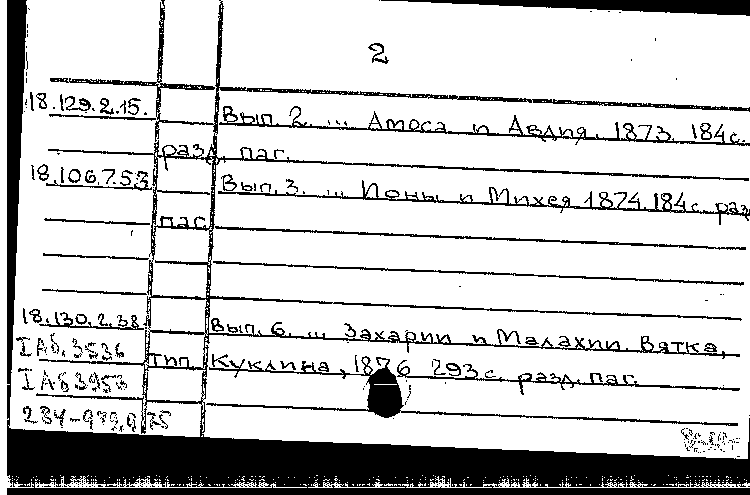 2
18.129.2.15. Вып. 2. ... Амоса и Авдия. 1873. 184с.
разд. паг.
18.106.7.53 Вып. 3. ... Ионы и Михея 1874. 184с. раз
паг.
18.130.2.38. Вып. 6. ... Захарии и Малахии. Вятка,
IАб. 3536 тип. Куклина, 1876 293 с. разд. паг.
IАб 3953